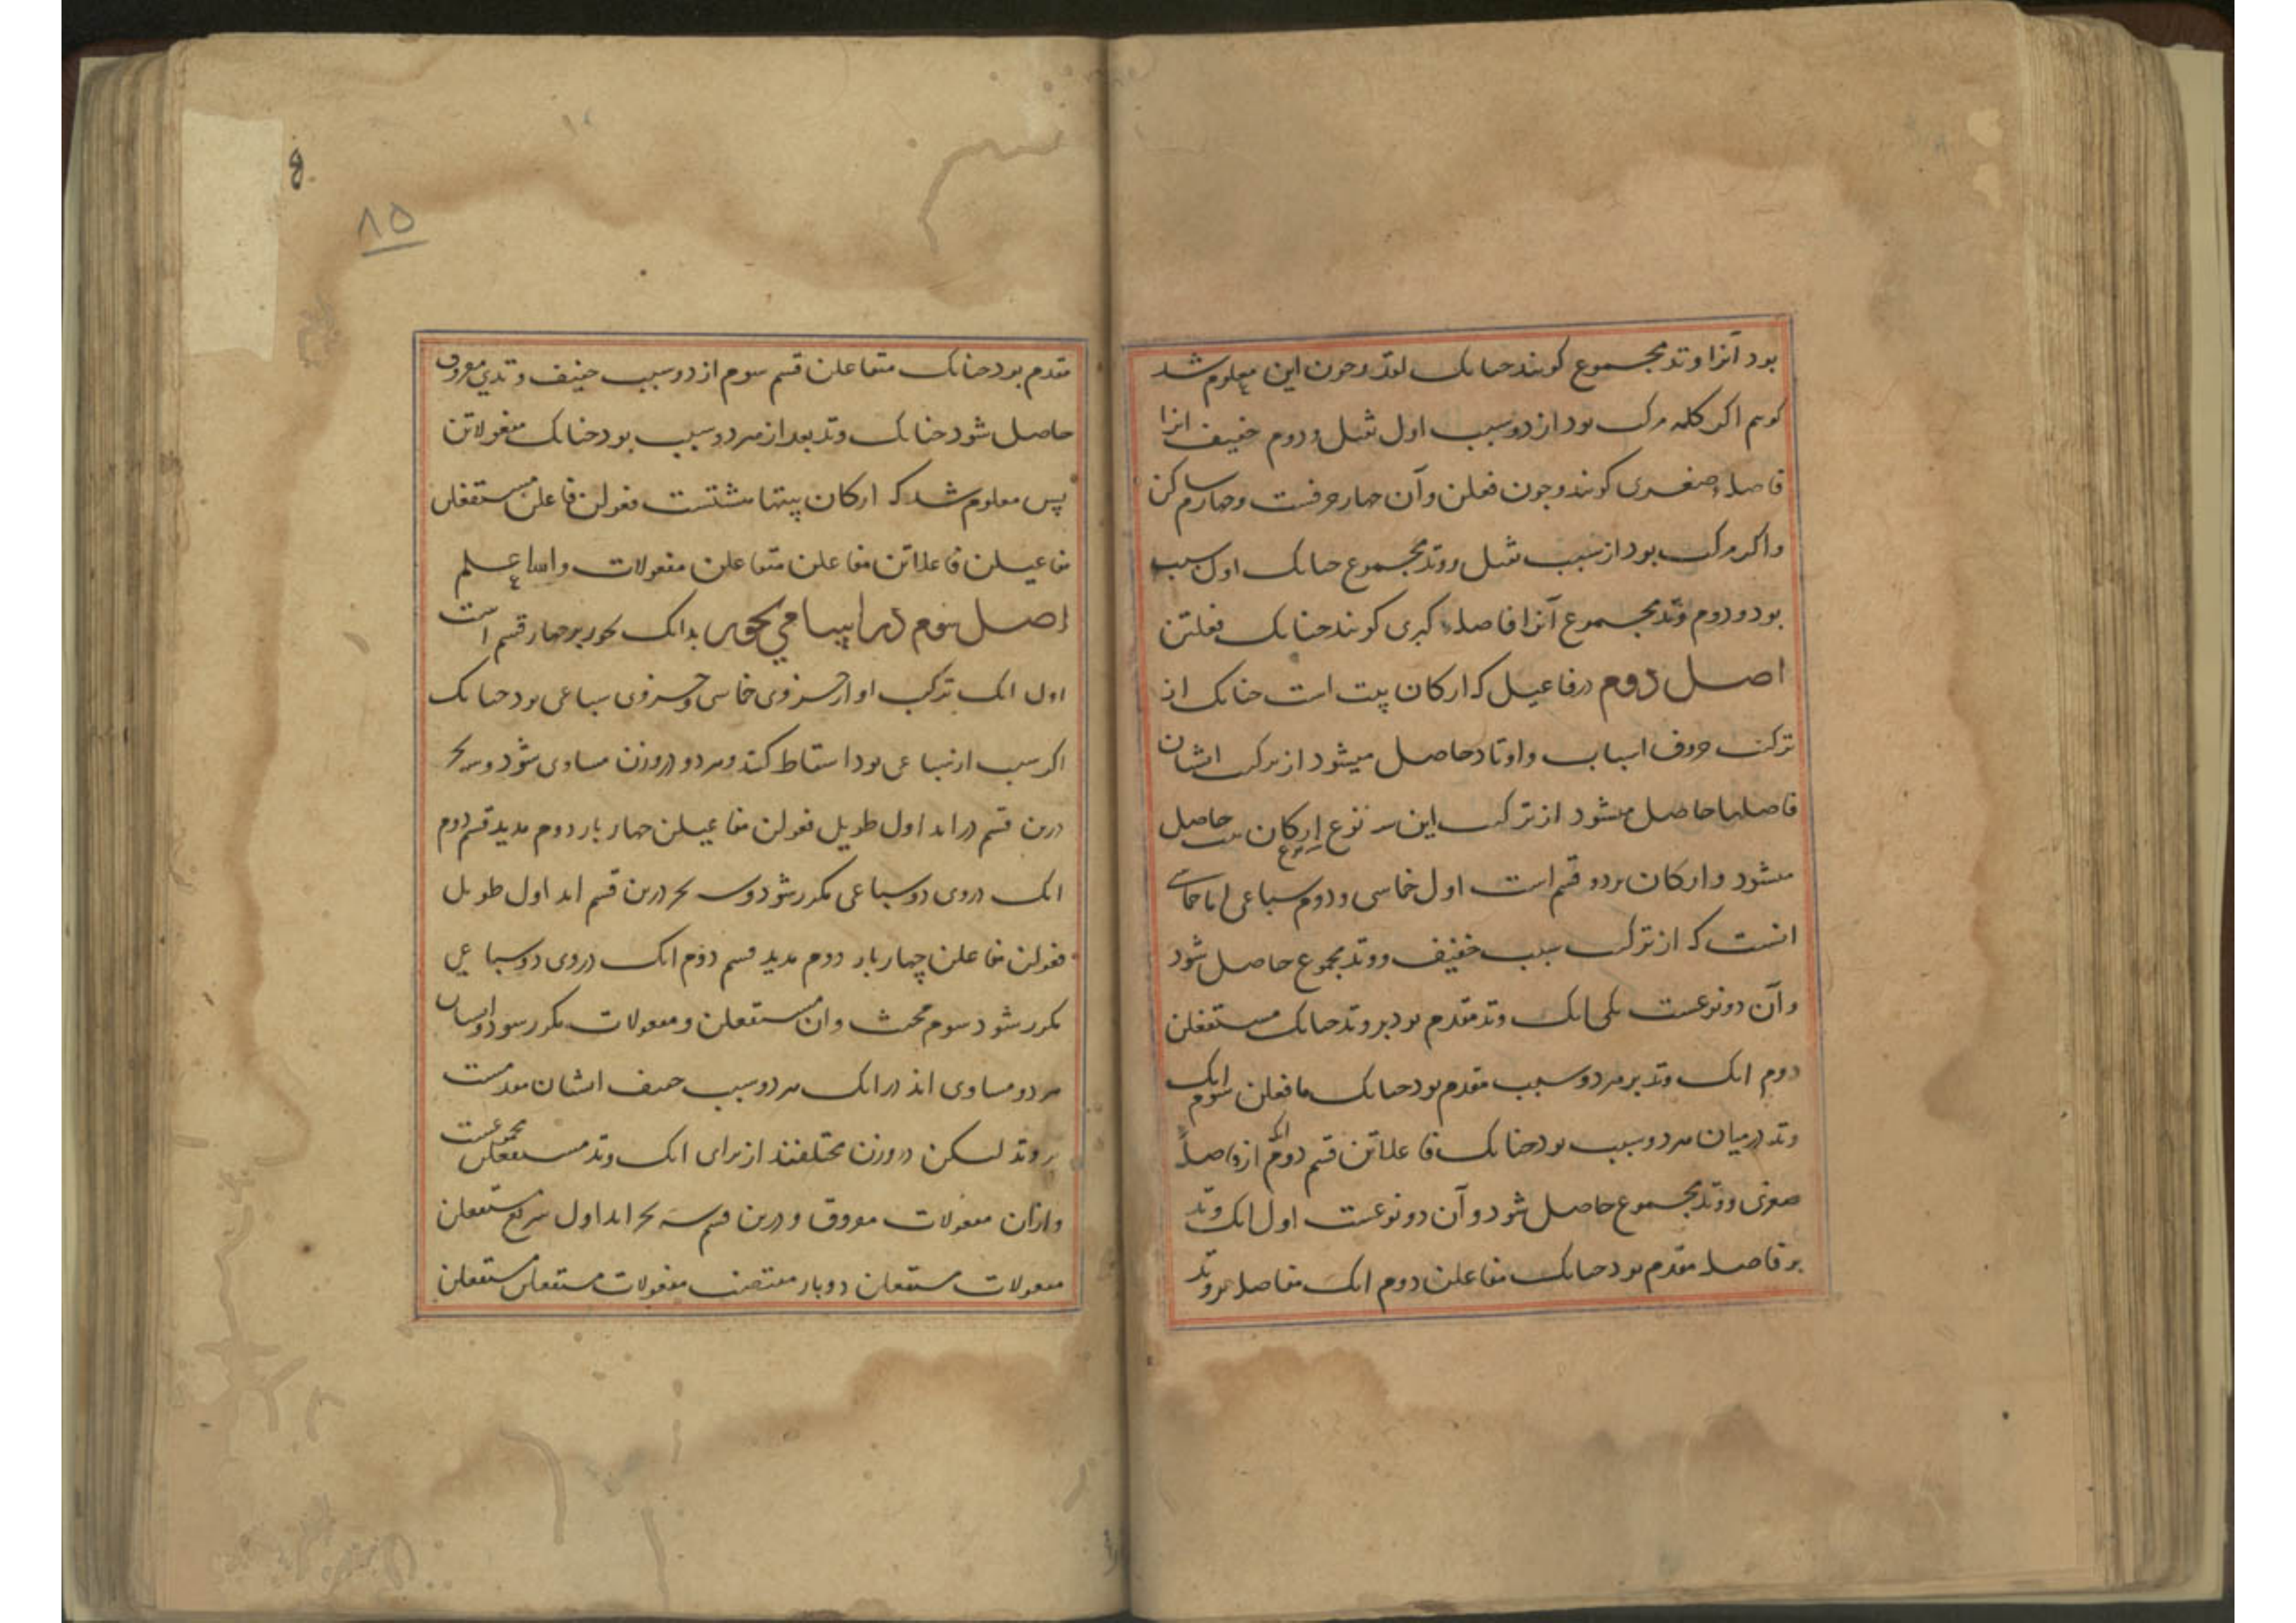 بود آنرا وتد مجموع کویند جنانک لقد و جون این معلوم شد
کوییم اکر کلمه مرکب بود از دو سبب اول ثقیل و دوم خفیف انرا
فاصلهٔ صغری کویند و جون فعلن و آن جهار حرفست و جهارم ساکن
و اکر مرکب بود از سبب ثقیل و وتد مجموع جنانک اول سبب
بود و دوم وتد مجموع آنرا فاصلهٔ کبری کویند جنانک فعلتن
اصل دوم در فاعیل که ارکان بیت است جنانک از
ترکیب حروف اسباب و اوتاد حاصل میشود از ترکیب ایشان
فاصلها حاصل میشود از ترکیب این سه نوع ارکان بیت حاصل
میشود و ارکان بر دو قسم است اول خماسی و دوم سباعی اما خماسی
انست که از ترکیب سبب خفیف و وتد مجموع حاصل شود
و آن دو نوعست یکی انک وتد مقدم بود بر وتد جنانک مستفعلن
دوم انک وتد بر هر دو سبب مقدم بود جنانک مافعلن سوم انک
وتد درمیان هر دو سبب بود جنانک فاعلاتن قسم دوم انک از فاصلهٔ
صغری و وتد مجموع حاصل شود و آن دو نوعست اول انک وتد
بر فاصله مقدم بود جنانک مفاعلن دوم انک مفاصله بر وتد
۸۵
مقدم بود جنانک متفاعلن قسم سوم از دو سبب خفیف و وتدی مفروق
حاصل شود جنانک وتد بعد از هر دو سبب بود جنانک مفعولاتن
پس معلوم شد که ارکان بیتها هشتست فعولن فاعلن مستفعلن
مفاعیلن فاعلاتن مفاعلن متفاعلن مفعولات والله اعلم
اصل سوم در اسامی بحور بدانک بحور بر جهار قسم است
اول انک ترکیب او از جزوی خماسی و جزوی سباعی بود جنانک
اکر سبب از سباعی بود اسقاط کنند و هر دو در وزن مساوی شود و سه بحر
درین قسم دراند اول طویل فعولن مفاعیلن جهار بار دوم مدید قسم دوم
انک در وی دو سباعی مکرر شود و سه بحر درین قسم اند اول طویل
فعولن مفاعلن چهار بار دوم مدید قسم دوم انک در وی دو سباعی
مکرر شود سوم مجتث و ان مستفعلن و مفعولات مکرر شود و ایشان
هر دو مساوی اند در انک هر دو سبب خفیف ایشان مقدمست
بر وتد لیکن در وزن مختلفند از برای انک وتد مستفعلن مجموعست
و از ان مفعولات مفروق و درین قسم سه بحر اند اول سریع مستفعلن
مفعولات مستفعلن دو بار مقتضب مفعولات مستفعلن مستفعلن